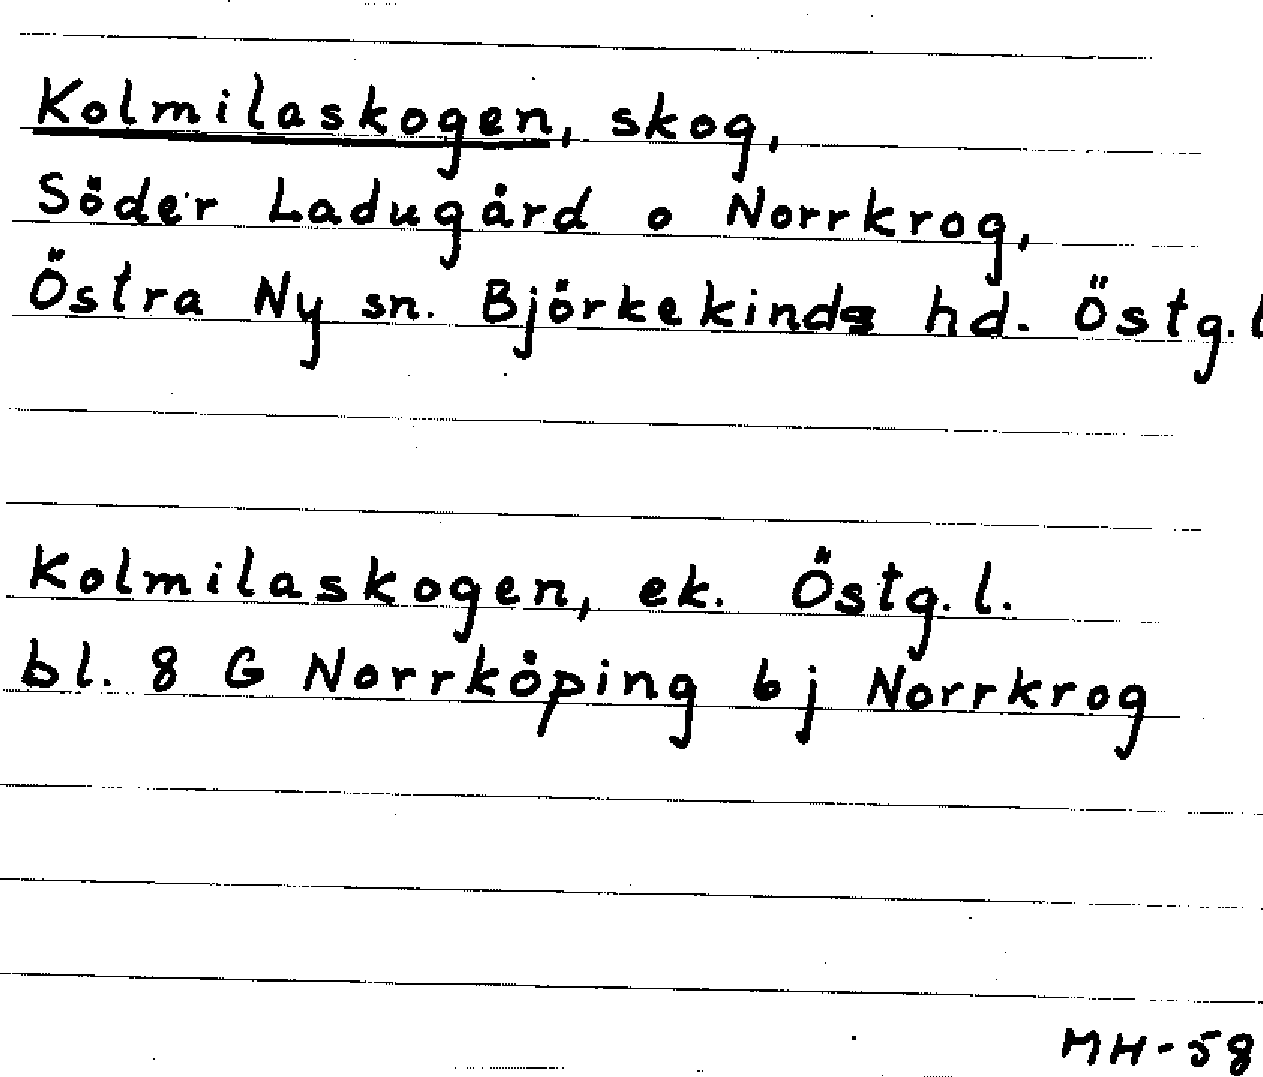 Kolmilaskogen, skog,
Söder Ladugård o Norrkrog,
Östra Ny sn. Björkekinds hd. Östg.l
Kolmilaskogen, ek. Östg.l.
bl. 8 G Norrköping bj Norrkrog
MH-58